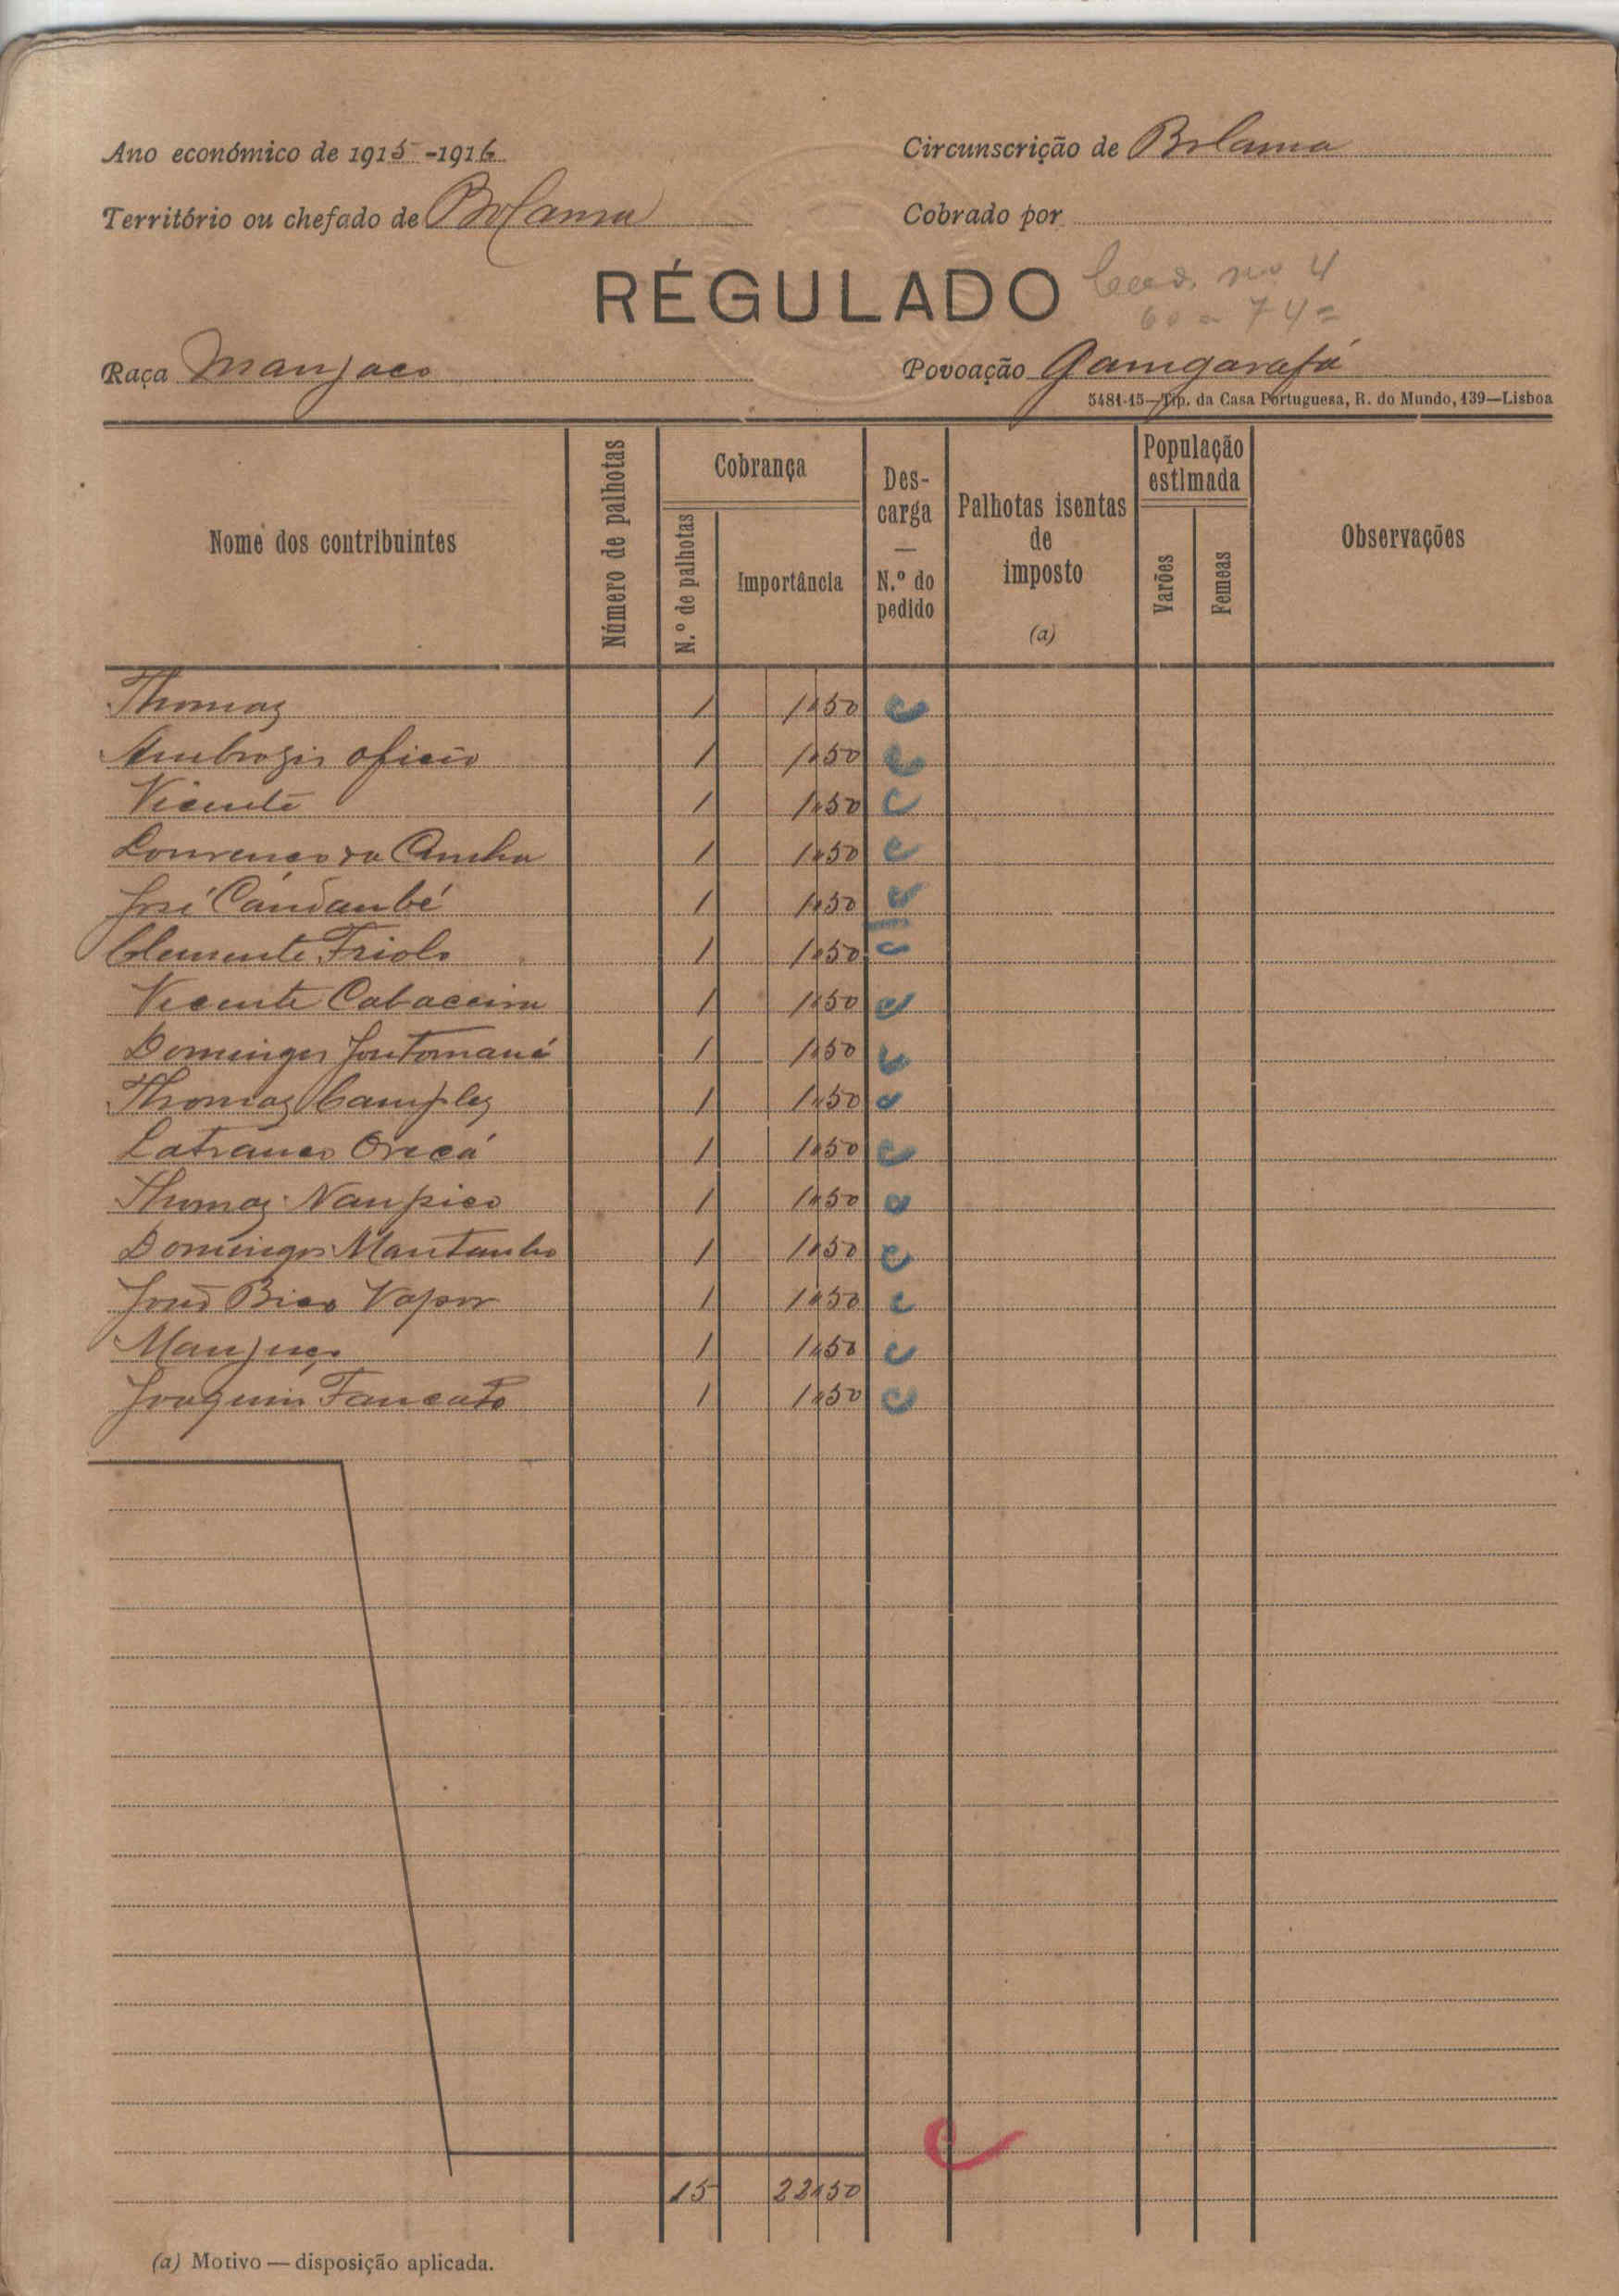 Ano económico de 1915-1916
Circunscrição de Bolama
Território ou chefado de Bolama
Cobrado por
RÉGULADO
nº 4
60 a 74
Raça Manjaco
Povoação Gamgarafá
5481-15—Tip. da Casa Portuguesa, R. do Mundo, 139—Lisboa
Nome dos contribuintes
Número de palhotas
Cobrança
N.º de palhotas
Importância
Des-
carga
—
N.º do
pedido
Palhotas isentas
de
imposto
(a)
População
estimada
Varões
Femeas
Observações
Thomaz 1 1$50 C
Ambrozio Oficio 1 1$50 C
Vicente 1 1$50 C
Lourenço da Cunha 1 1$50 C
José Candanbé 1 1$50 C
Clemente Friolo 1 1$50 C
Vicente Cabaceira 1 1$50 C
Domingos 1 1$50 C
Thomaz Camplez 1 1$50 C
Latranco Oricá 1 1$50 C
Thomaz Nanpico 1 1$50 C
Domingos Mantanho 1 1$50 C
João Bico Vapor 1 1$50 C
1 1$50 C
Joaquim Fancato 1 1$50 C
C
15 22$50
(a) Motivo — disposição aplicada.